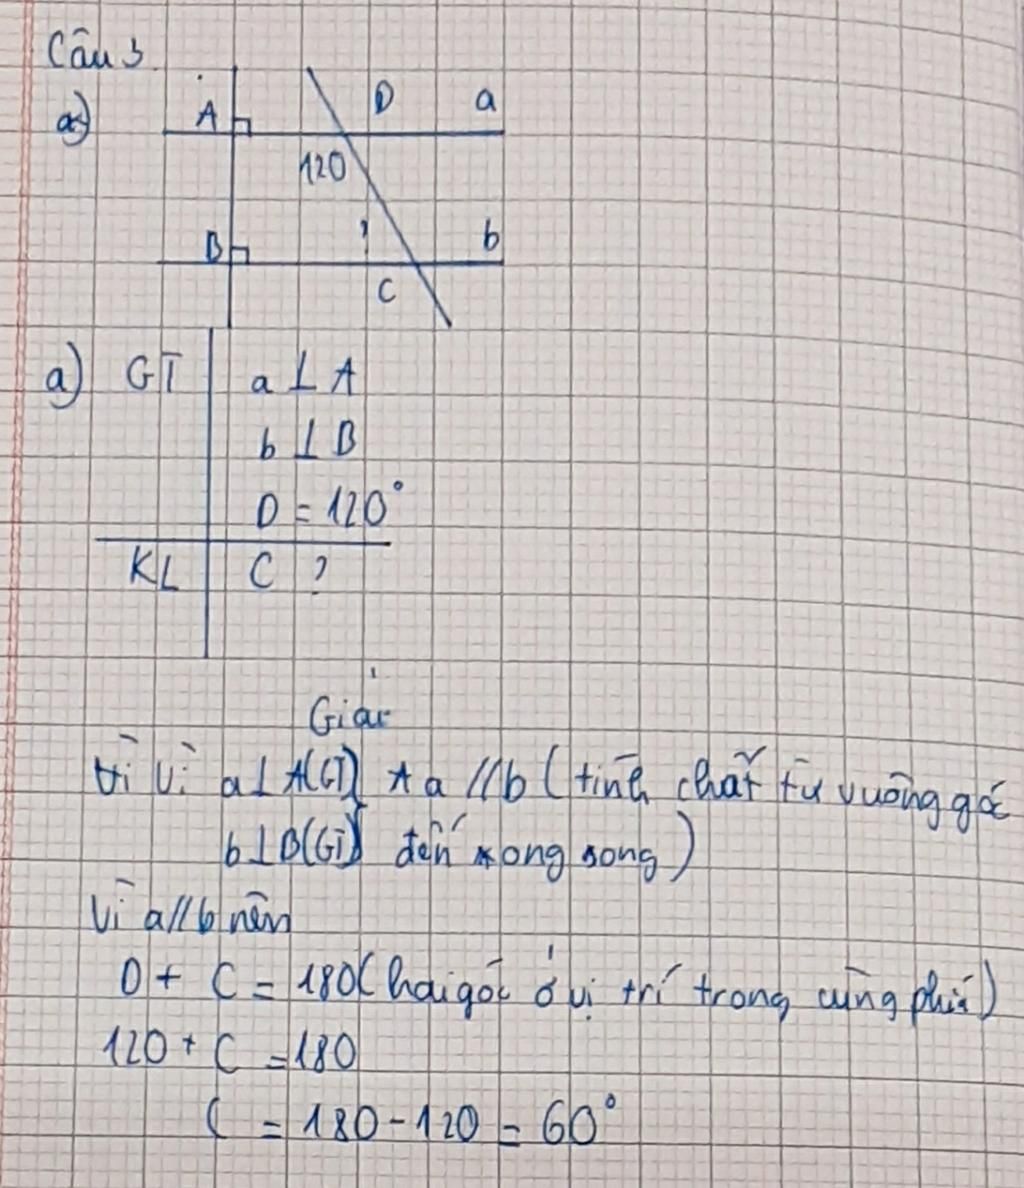 Câu 3
a)
A D a
120
B ? b
C
a) GT a ⊥ A
b ⊥ B
D = 120°
KL C ?
Giải
Vì a ⊥ A(GT) a // b (tính chất từ vuông góc
b ⊥ B(GT) đến song song)
Vì a // b nên
D + C = 180 (hai góc ở vị trí trong cùng phía)
120 + C = 180
C = 180 - 120 = 60°